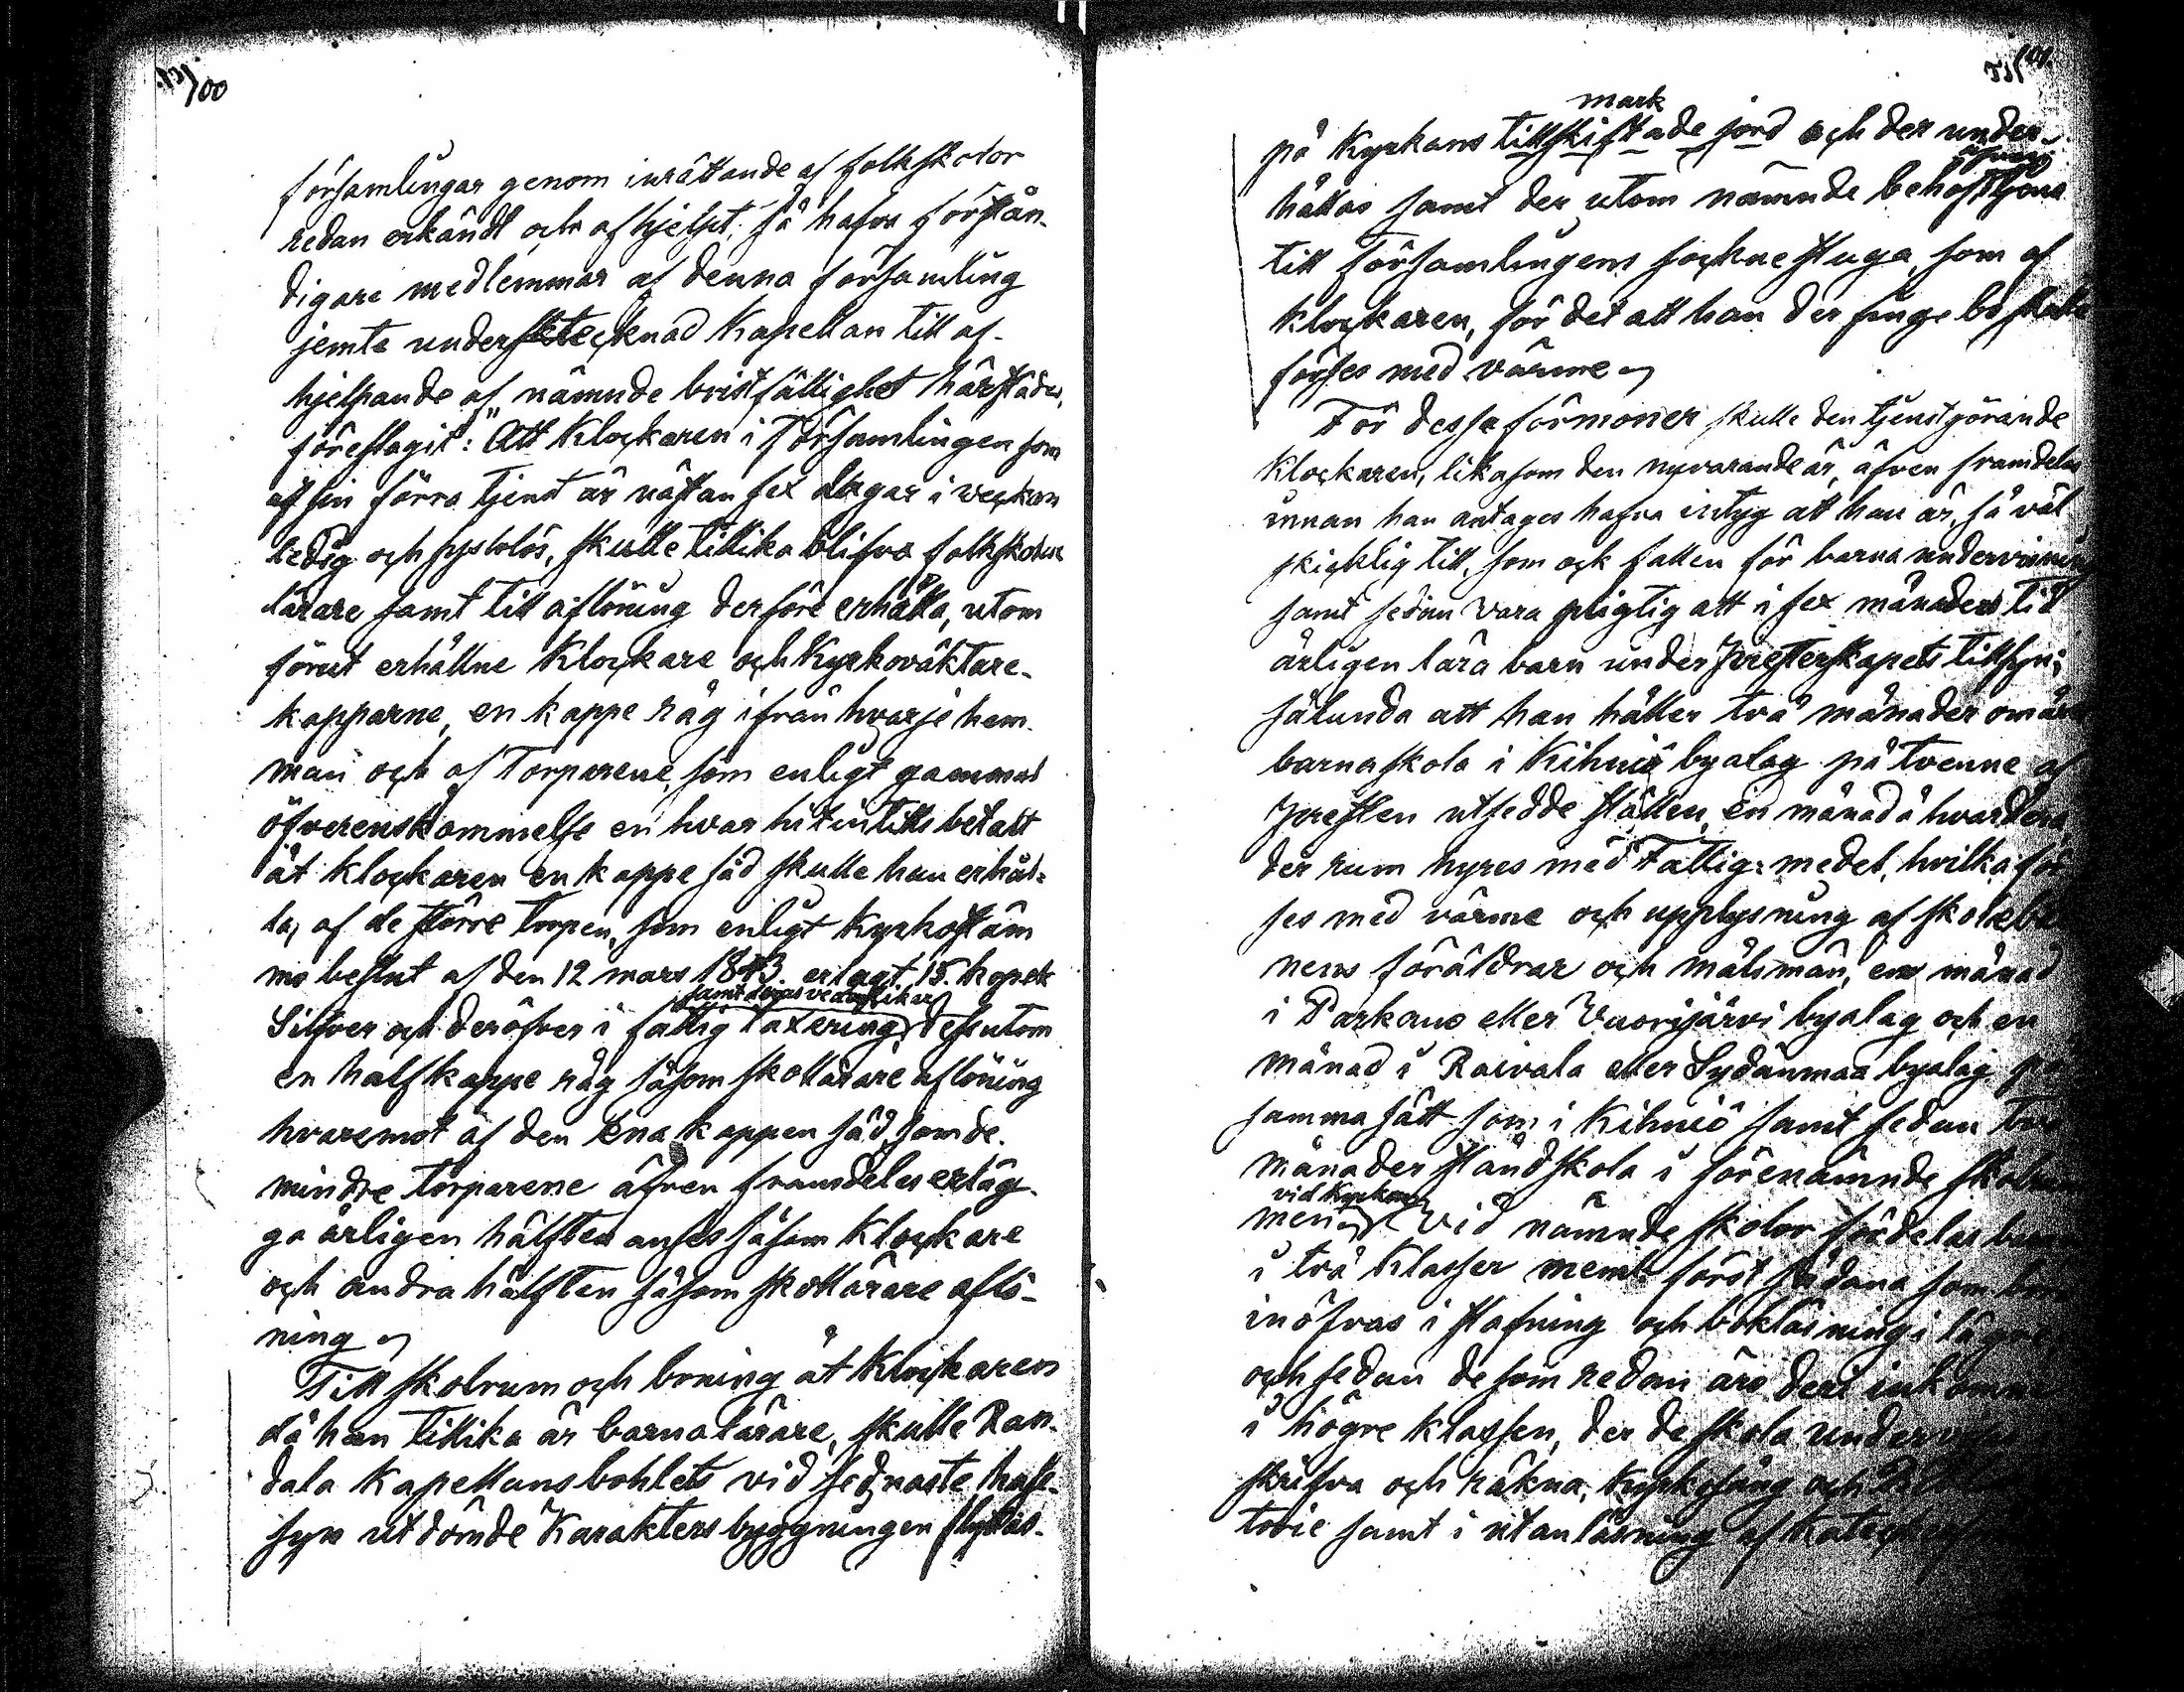 100
församlingar genom inrättande af folkskolor
redan erkändt och afhjelpt; så hafva förstån-
digare medlemmar af denna församling
jemte undertecknad Kapellan till af-
hjelpande af nämnde bristfällighet härstädes,
föreslagit: "Att Klockaren i Församlingen som
af sin förra tjenst är nästan sex dagar i veckan
ledig och sysslolös, skulle tillika blifva folkskole
lärare samt till aflöning derföre erhålla, utom
förut erhållne Klockare och Kyrkoväktare-
kapparne, en kappe råg ifrån hvarje hem-
man och af Torparene, som enligt gammal
öfverenskommelse en hvar hitintills betalt
åt klockaren en kappe säd skulle han erhål-
la, af de större torpen, som enligt Kyrkostäm
mo beslut af den 12 mars 1843 erlagt 15 kopek
samt deras vederlikar
Silfver och deröfver i fattig taxering, dessutom
en half kappe råg såsom skollärare aflöning
hvaremot af den ena kappen säd, som de
mindre torparene äfven framdeles erläg-
ga årligen hälften anses såsom klockare
och andra hälften såsom skollärare aflö-
ning
Till skolrum och boning åt Klockaren
då han tillika är barnalärare, skulle Ran-
dala Kapellansbohlets vid sednaste huse-
syn utdömde Karaktersbyggningen flyttas
101.
mark
på Kyrkans tillskiftade jord och der under-
äfven
hållas samt der utom nämnde behof tjena
till Församlingens sockne stuga, som af
klockaren, för det att han der finge bo skulle
förses med värme
För dessa förmoner skulle den tjenstgörande
Klockaren, likasom den nuvarande är, äfven framdeles
innan han antages hafva intyg att han är, så väl
skicklig till, som ock fallen för barna undervisning
samt sedan vara pligtig att i sex månaders tid
årligen lära barn under Presterskapets tillsyn;
sålunda att han håller två månader om året
barnaskola i Kihniö byalag på tvenne af
Presten utsedde ställen, en månad å hvardera
der rum hyres med Fattig-medel, hvilka för
ses med värme och upplysning af skolebar
nens föräldrar och målsmän, en månad
i Parkano eller Vuorijärvi byalag och en
månad i Raivala eller Sydänmaa byalag, på
samma sätt som i Kihniö samt sedan två
månader ståndskola i förenämnde skolrum
vid Kyrkan
men Vid nämnde skolor fördelas barn
i två Klasser nemlt först sådana som böra
inöfvas i stafning och bokläsning i lägre
och sedan de som redan äro deri inkomna
i högre klassen, der de skola
skrifva och räkna, kyrkosång och
torie samt i utanläsning af